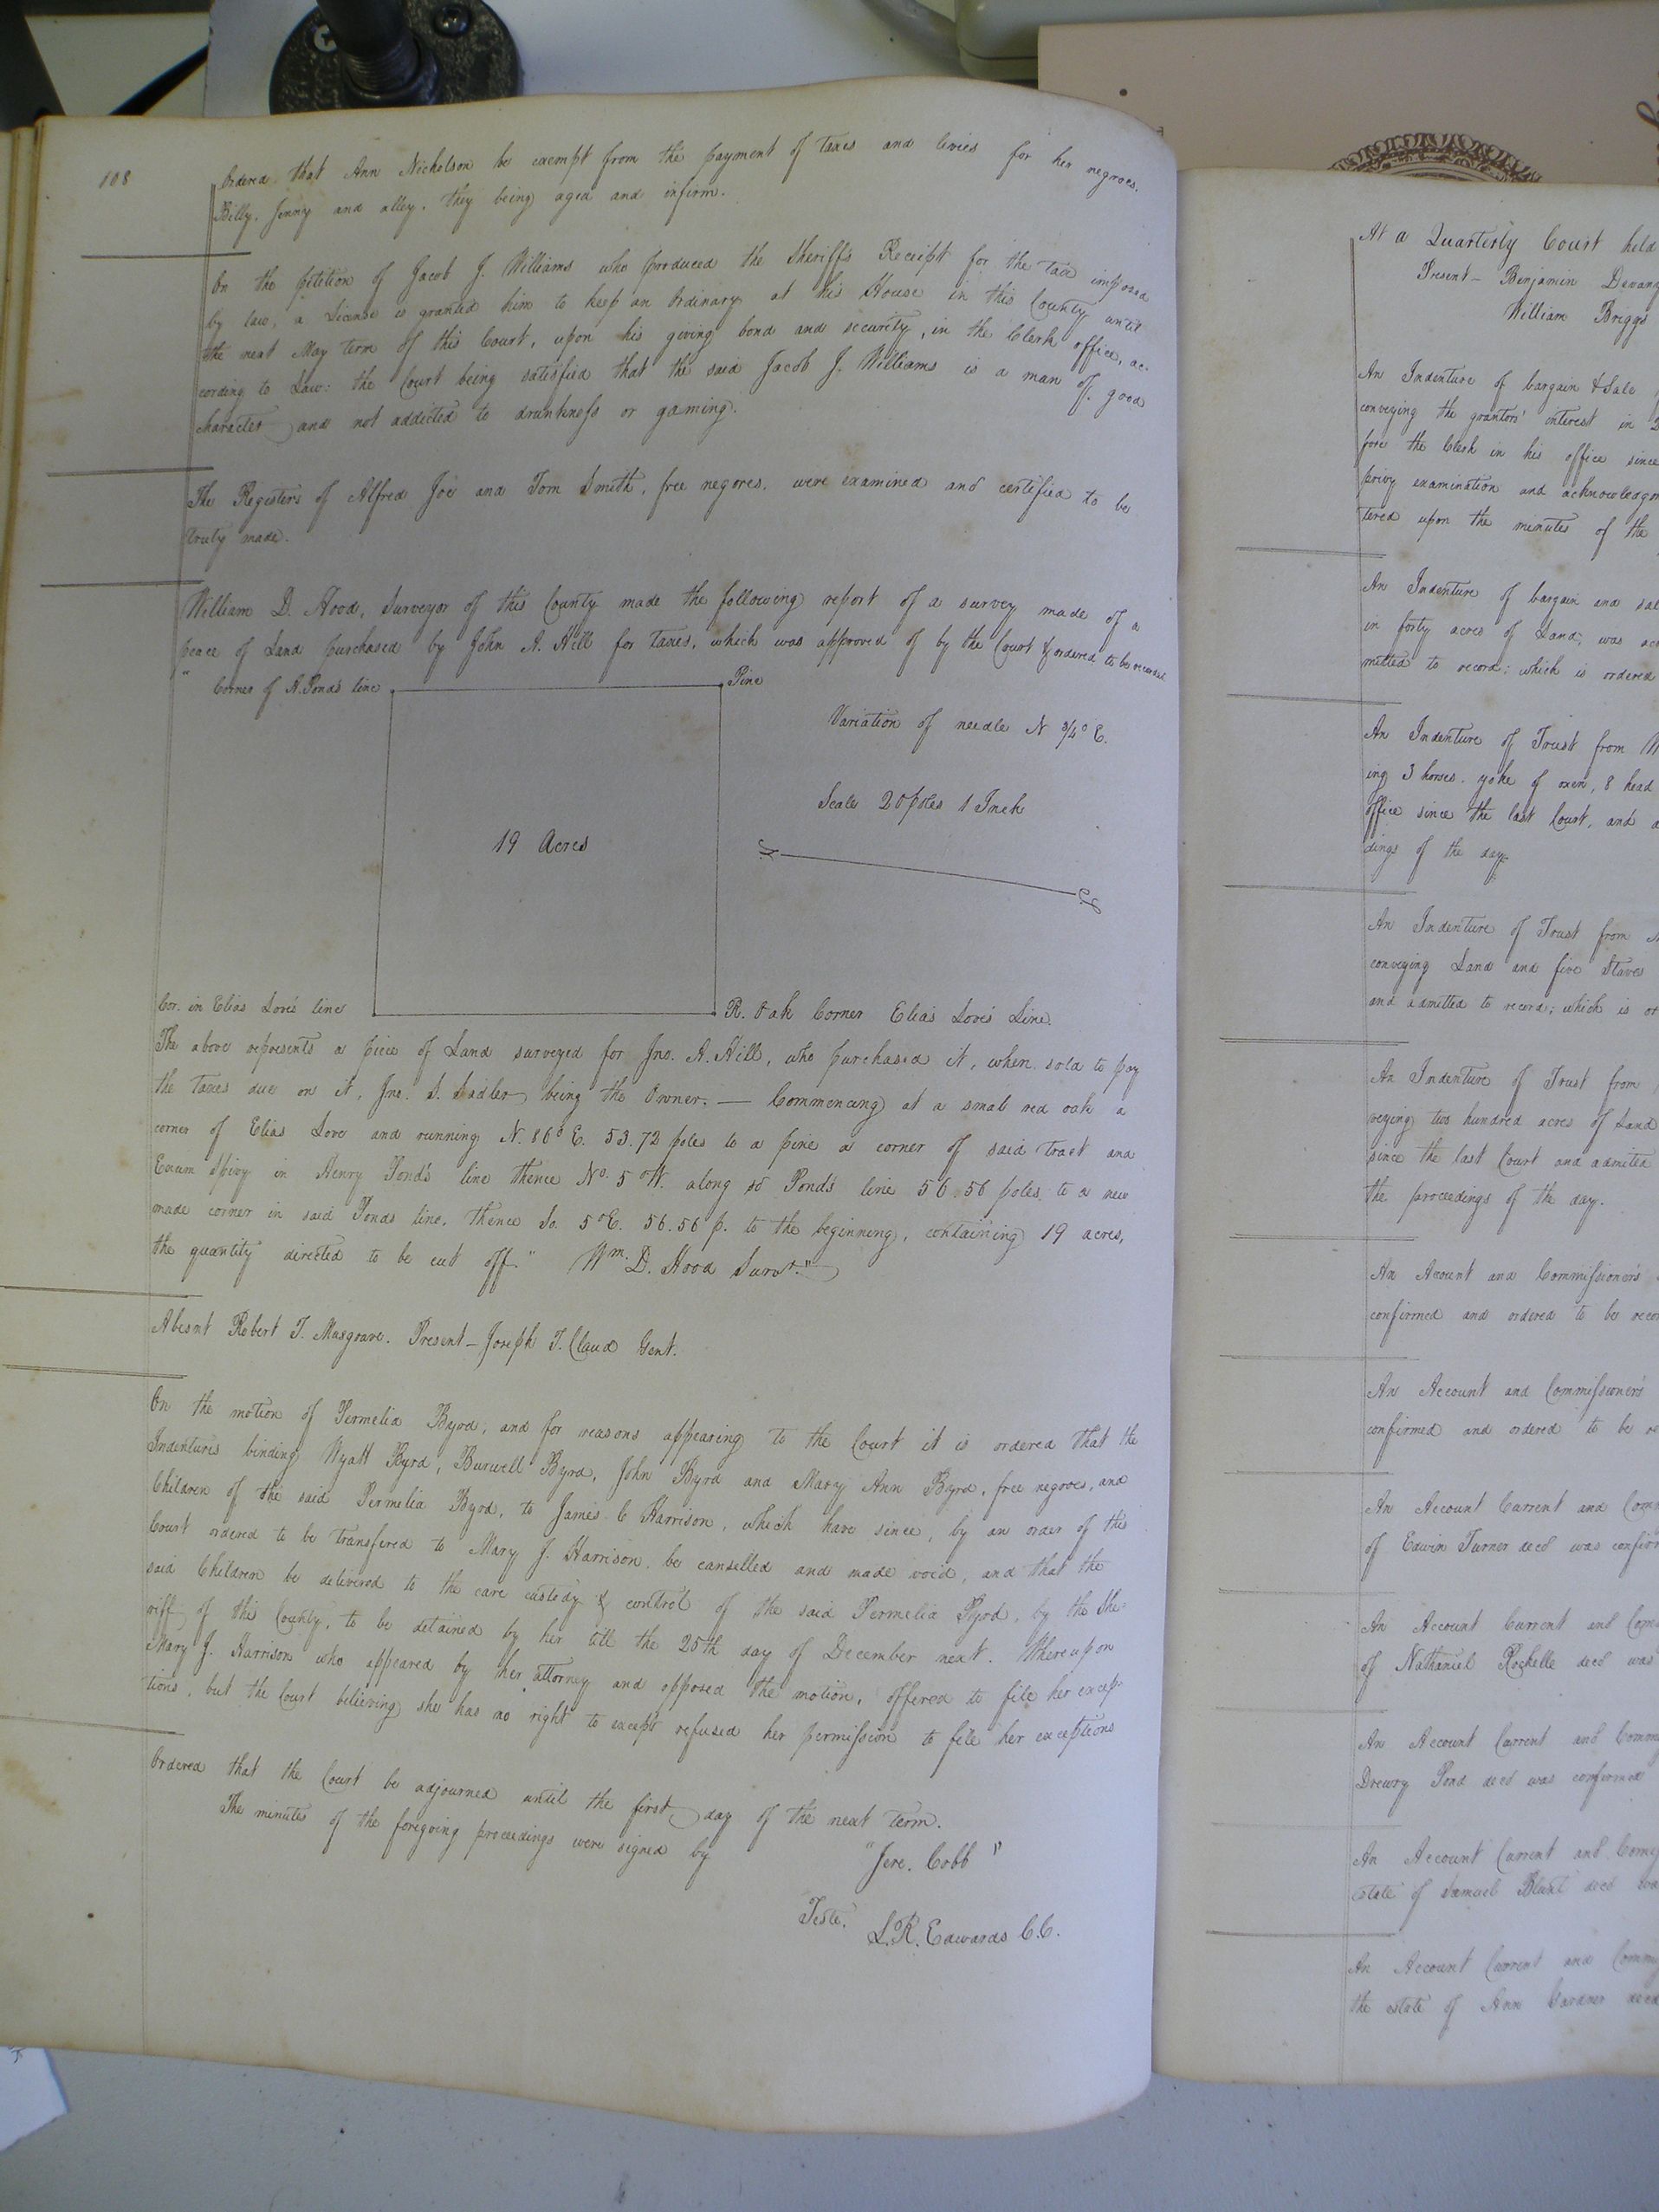 108
Ordered that Ann Nicholson be exempt from the payment of taxes and levies for her negroes.
Billy, Jenny and alley, they being aged and infirm.
On the petition of Jacob J. Williams who produced the Sheriff's Receipt for the tax imposed
by law, a License is granted him to keep an Ordinary at his House in this County until
the next May term of this Court, upon his giving bond and security, in the Clerk office, ac-
cording to Law: the Court being satisfied that the said Jacob J. Williams is a man of good
character and not addicted to drunkness or gaming.
The Registers of Alfred Joe and Tom Smith, free negores, were examined and certified to be
truly made.
William D. Hood, Surveyor of this County made the following report of a survey made of a
peace of Land purchased by John A. Hill for taxes, which was approved of by the Court & ordered to be recorded
" Corner of H. Pond's line Pine
Variation of needle N 3/4° E.
Scale 20 poles 1 Inch
19 Acres
N S
Cor. in Elias Love's line R. Oak Corner Elias Love's Line.
The above represents a piece of Land surveyed for Jno. A. Hill, who purchased it, when sold to pay
the taxes due on it, Jno. S. Sadler being the Owner. — Commencing at a smal red oak a
corner of Elias Love and running N. 86° E. 53.72 poles to a pine a corner of said tract and
Exum Spivy in Henry Pond's line thence No. 5° W. along sd Pond's line 56.56 poles, to a new
made corner in said Ponds line, thence So. 5° E. 56.56 p. to the beginning, containing 19 acres,
the quantity directed to be cut off." Wm. D. Hood Survr."
Abesnt Robert T. Musgrave. Present – Joseph T. Claud Gent.
On the motion of Permelia Byrd, and for reasons appearing to the Court it is ordered that the
Indentures binding Wyatt Byrd, Burwell Byrd, John Byrd and Mary Ann Byrd, free negroes, and
Children of the said Permelia Byrd, to James C Harrison, which have since, by an order of this
Court ordered to be transfered to Mary J. Harrison, be canselled and made void, and that the
said Children be delivered to the care custody & control of the said Permelia Byrd, by the She-
riff of this County, to be detained by her till the 25th day of December next. Whereupon
Mary J. Harrison who appeared by her attorney and opposed the motion, offered to file her excep-
tions, but the Court believing she has no right to except refused her permission to file her exceptions
Ordered that the Court be adjourned until the first day of the next term.
The minutes of the foregoing proceedings were signed by
"Jere. Cobb"
Teste, L. R. Edwards C.C.
At a Quarterly Court held
Present – Benjamin
William Briggs
An Indenture of bargain & Sale
conveying the grantors' interest in
fore the Clerk in his office since
privy examination and
tered upon the minutes of the
An Indenture of bargain and
in forty acres of Land; was
mitted to record; which is ordered
An Indenture of Trust from
ing 3 horses, yoke of oxen, 8 head
office since the last Court, and
dings of the day.
An Indenture of Trust from
conveying Land and five Slaves
and admitted to record; which is
An Indenture of Trust from
veying two hundred acres of Land
since the last Court and admited
the proceedings of the day.
An Acount and Commissioner's
confirmed and ordered to be
An Account and Commissioner's
confirmed and ordered to be
An Account Current and
of Edwin Turner decd was
An Account Current and
of Nathaniel Rochelle decd was
An Account Current and
Drewry Pond decd was confirmed
An Account Current and
estate of Samuel Blunt decd
An Account Current and
the estate of Ann Gardner